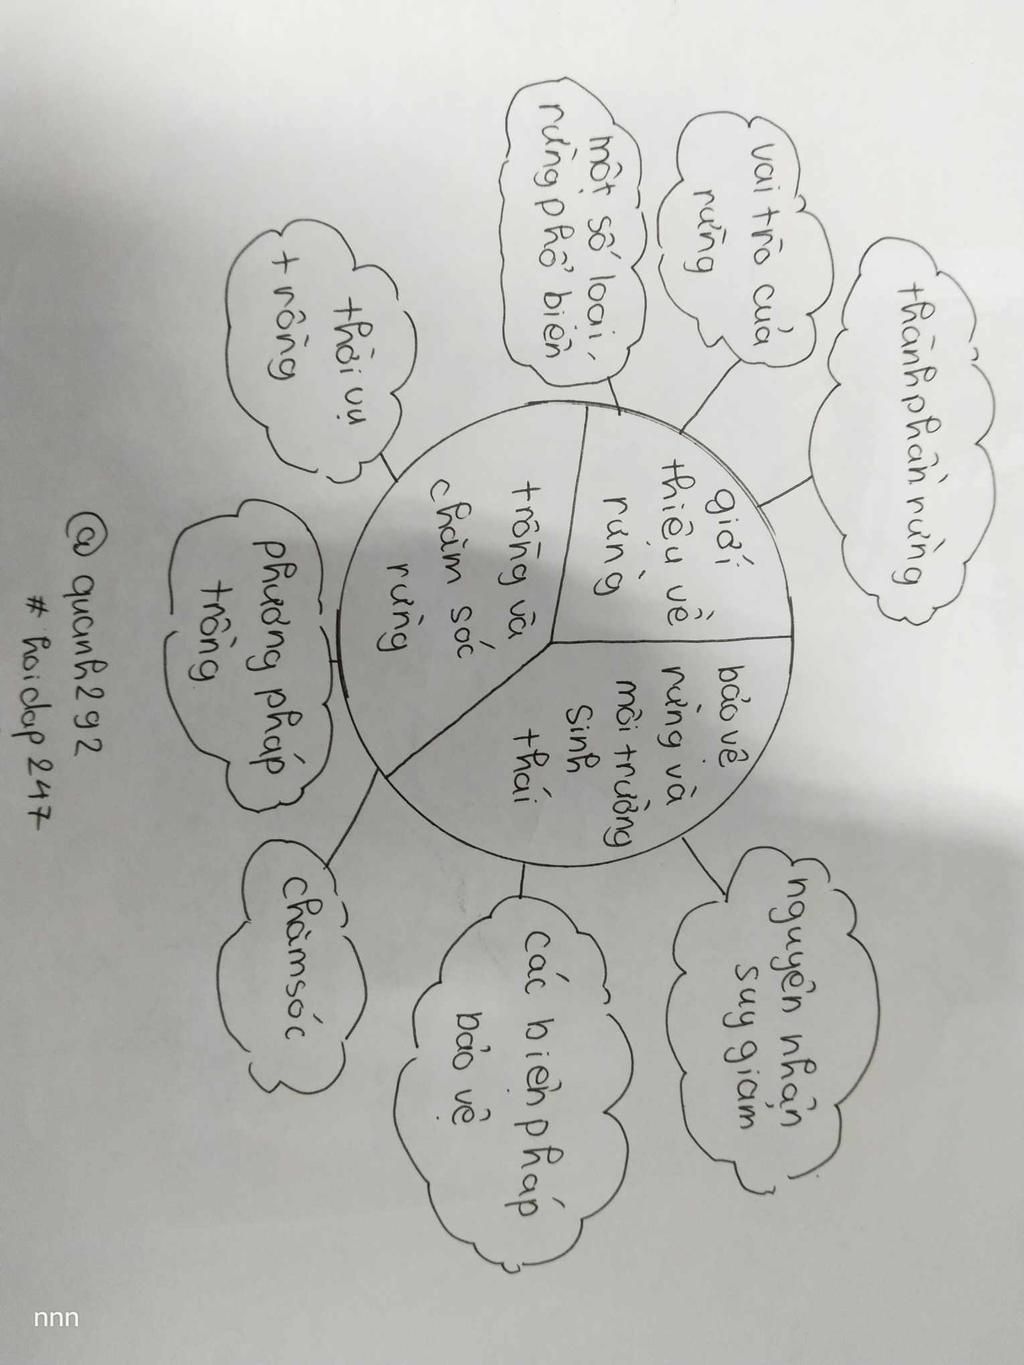 thành phần rừng
vai trò của
rừng
một số loại
rừng phổ biến
giới
thiệu về
rừng
bảo vệ
rừng và
môi trường
sinh
thái
trồng và
chăm sóc
rừng
nguyên nhân
suy giảm
các biện pháp
bảo vệ
thời vụ
trồng
phương pháp
trồng
chăm sóc
@quanh292
#hoidap247
nnn